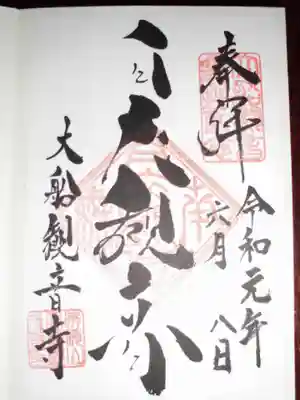 奉拝
令和元年
六月八日
白衣観音
大船観音寺